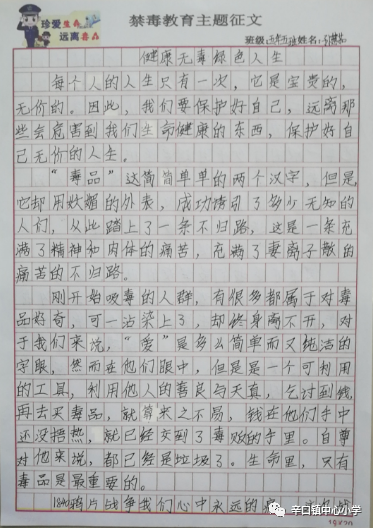 禁毒教育主题征文
珍爱生命
远离毒品
班级:五年五班姓名:
健康无毒绿色人生
每个人的人生只有一次，它是宝贵的，
无价的。因此，我们要保护好自己，远离那
些会危害到我们生命健康的东西，保护好自
己无价的人生。
"毒品"这简简单单的两个汉字，但是，
它却用妖媚的外表，成功诱引了多少无知的
人们，从此踏上了一条不归路，这是一条充
满了精神和肉体的痛苦，充满了妻离子散的
痛苦的不归路。
刚开始吸毒的人群，有很多都属于对毒
品好奇，可一沾染上了，却终身离不开，对
于我们来说，"爱"是多么简单而又纯洁的
字眼，然而在他们眼中，但是是一个可利用
的工具，利用他人的善良与天真，乞讨到钱
再去买毒品，就算来之不易，钱在他们手中
还没捂热，就已经交到了毒贩的手里。自尊
对他来说，都已经是垃圾了。生命里，只有
毒品是最重要的。
1840鸦片战争我们心中永远的
辛口镇中心小学